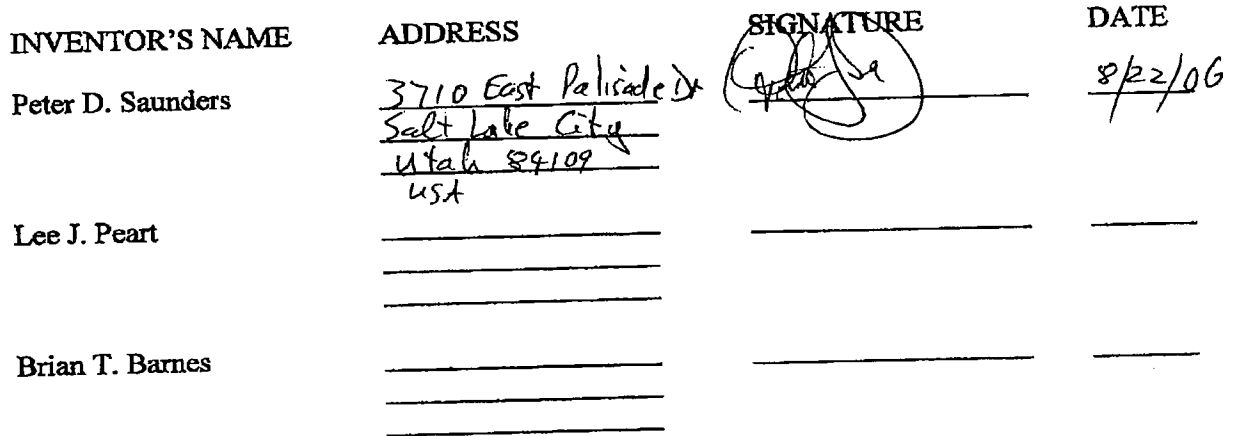 INVENTOR'S NAME ADDRESS SIGNATURE DATE
Peter D. Saunders 3710 East Palisade Dr 8/22/06
Salt Lake City
Utah 84109
USA
Lee J. Peart
Brian T. Barnes